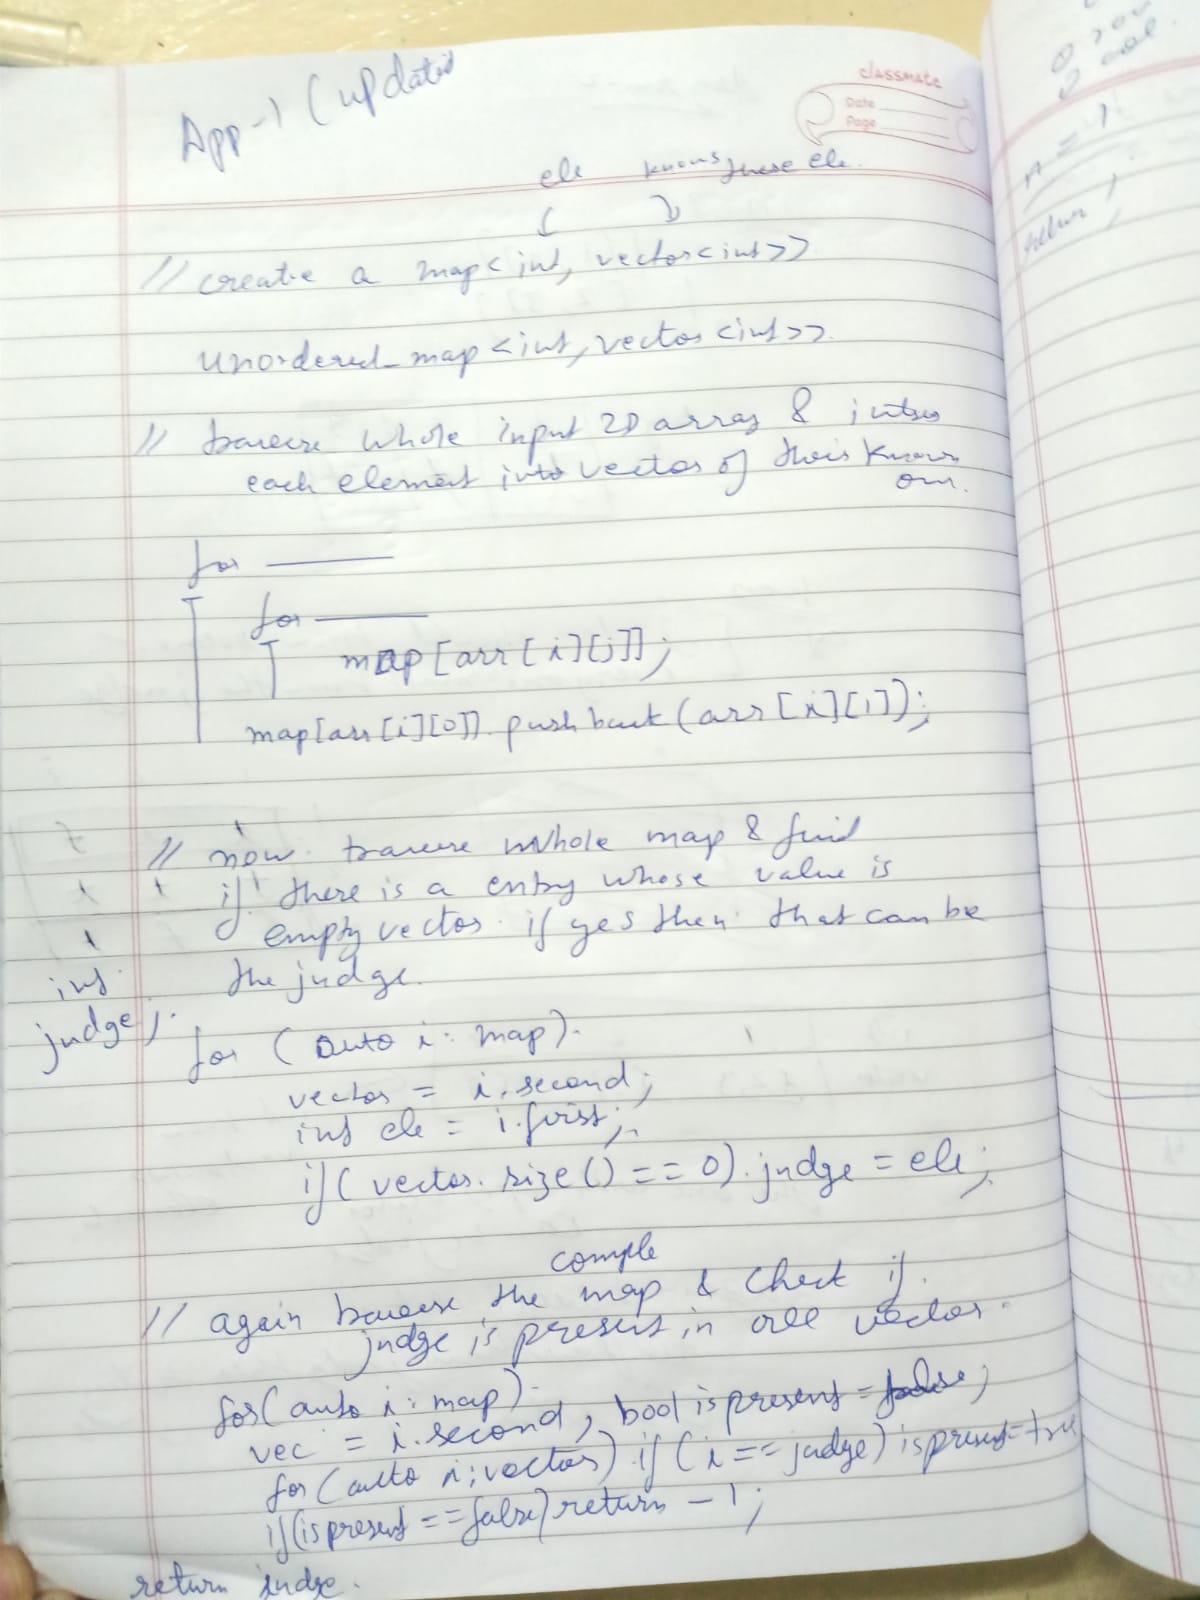 App-1 (updated
classmate
Date
Page
ele knows these ele.
// create a map<int, vector<int>>
unordered_map<int, vector<int>>
// traverse whole input 2D array &
each element into vector of their known
one.
for
for
map[arr[i][j]];
map[arr[i][0]].pushback(arr[i][1]);
// now traverse whole map & find
if there is a entry whose value is
empty vector. if yes then that can be
the judge.
int
judge;
for (auto i: map).
vector = i.second;
int ele = i.first;
if( vector.size() == 0).judge = ele;
comple
// again traverse the map & check if
judge is present in all vector.
for(auto i: map)
vec = i.second, bool ispresent = false;
for(auto i:vector) if(i == judge) ispresent=true
if(ispresent == false) return -1;
return judge.
n = 1
return 1